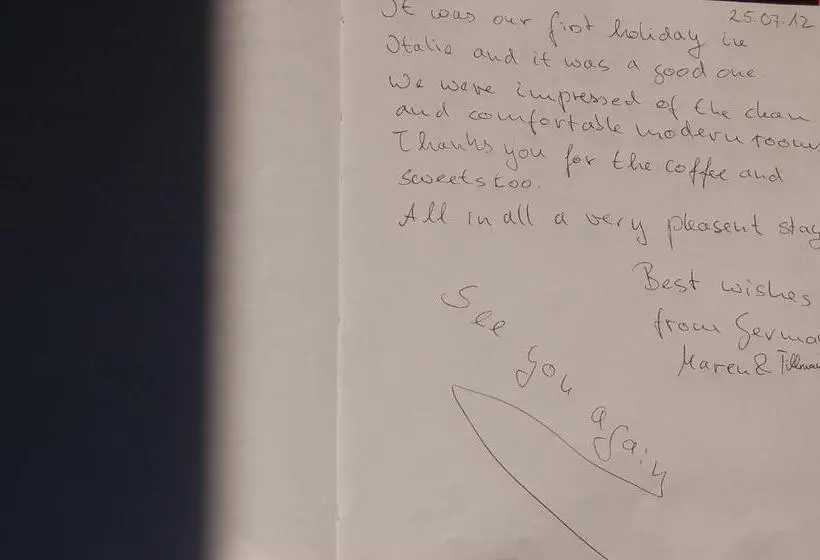 25.07.12
It was our first holiday in
Italia and it was a good one.
We were impressed of the clean
and comfortable modern room
Thanks you for the coffee and
sweets too.
All in all a very pleasent stay
Best wishes
from Germa
Maren &
See you again